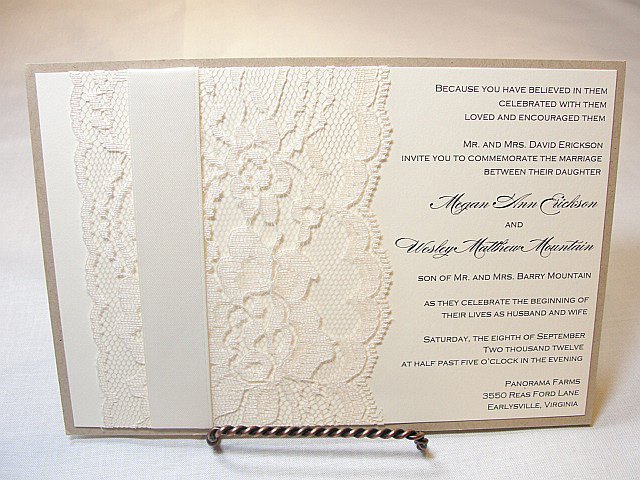 Because you have believed in them
celebrated with them
loved and encouraged them
Mr. and Mrs. David Erickson
invite you to commemorate the marriage
between their daughter
Megan Ann Erickson
and
Wesley Matthew Mountain
son of Mr. and Mrs. Barry Mountain
as they celebrate the beginning of
their lives as husband and wife
Saturday, the eighth of September
Two thousand twelve
at half past five o'clock in the evening
Panorama Farms
3550 Reas Ford Lane
Earlysville, Virginia